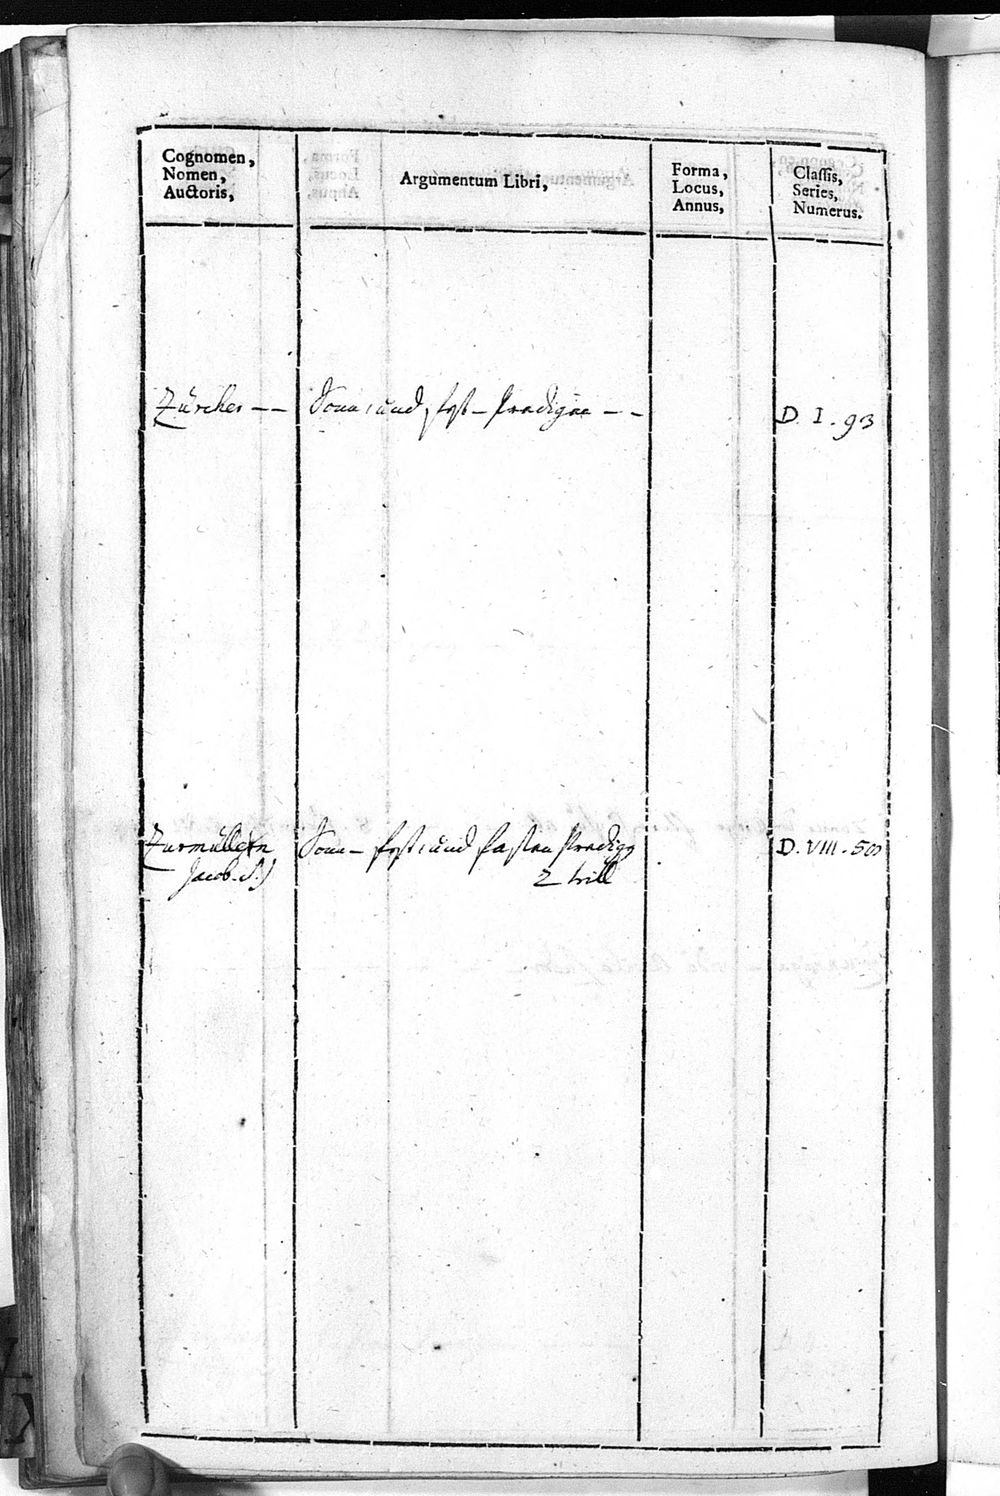 Cognomen,
Nomen,
Auctoris,
Argumentum Libri,
Forma,
Locus,
Annus,
Classis,
Series,
Numerus.
Zürcher -- Sonn: und fest- Predigen -- D. I. 93
Zurmüllen Sonn- fest: und fasten Predig D. VIII. 50
Jacob. S.J 2 theill